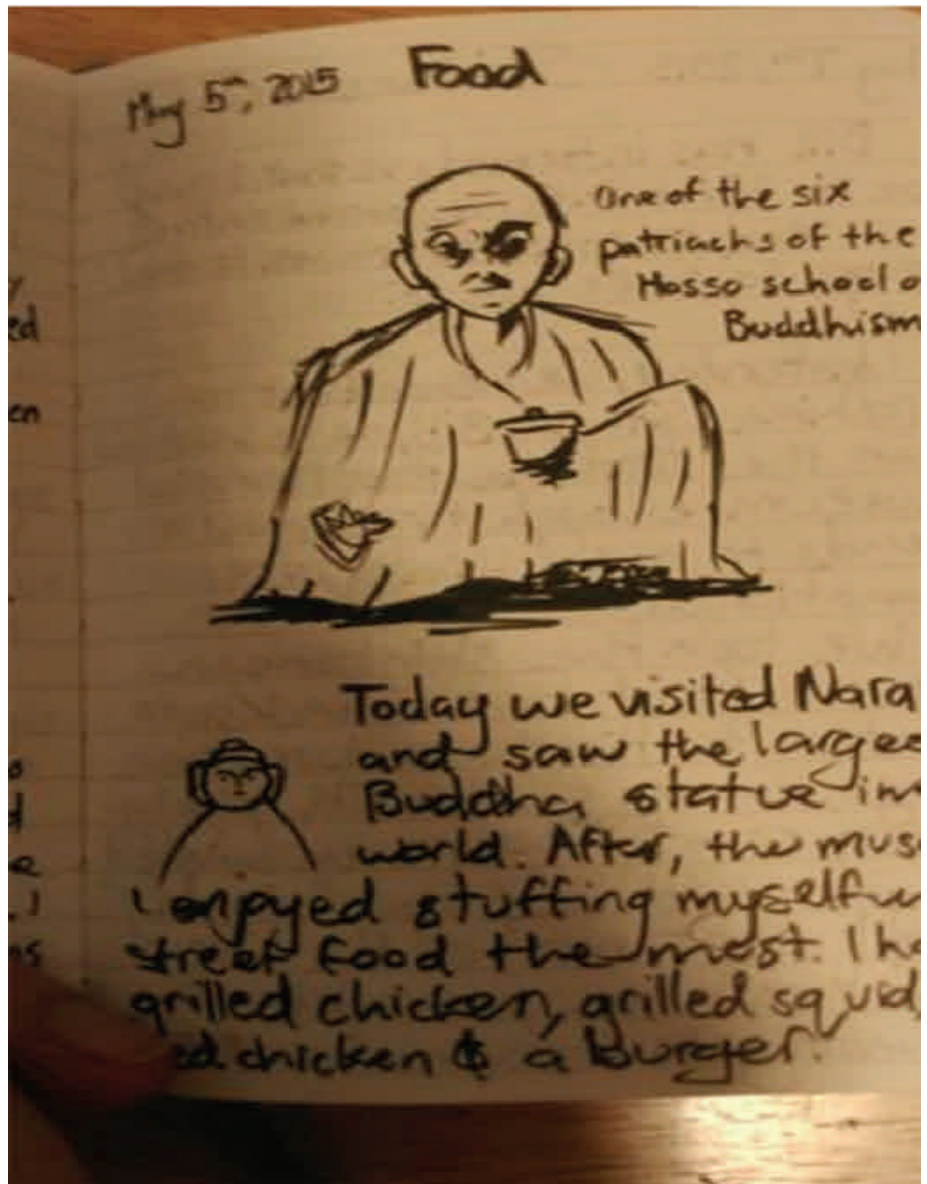 May 5th, 2015 Food
One of the six
patriachs of the
Hosso school o
Buddhism
y
ed
en
Today we visited Nara
and saw the larges
Buddha statue in
world. After, the mus
I enjoyed stuffing myself
street food the most. I ha
grilled chicken, grilled squid,
ed chicken & a Burger.